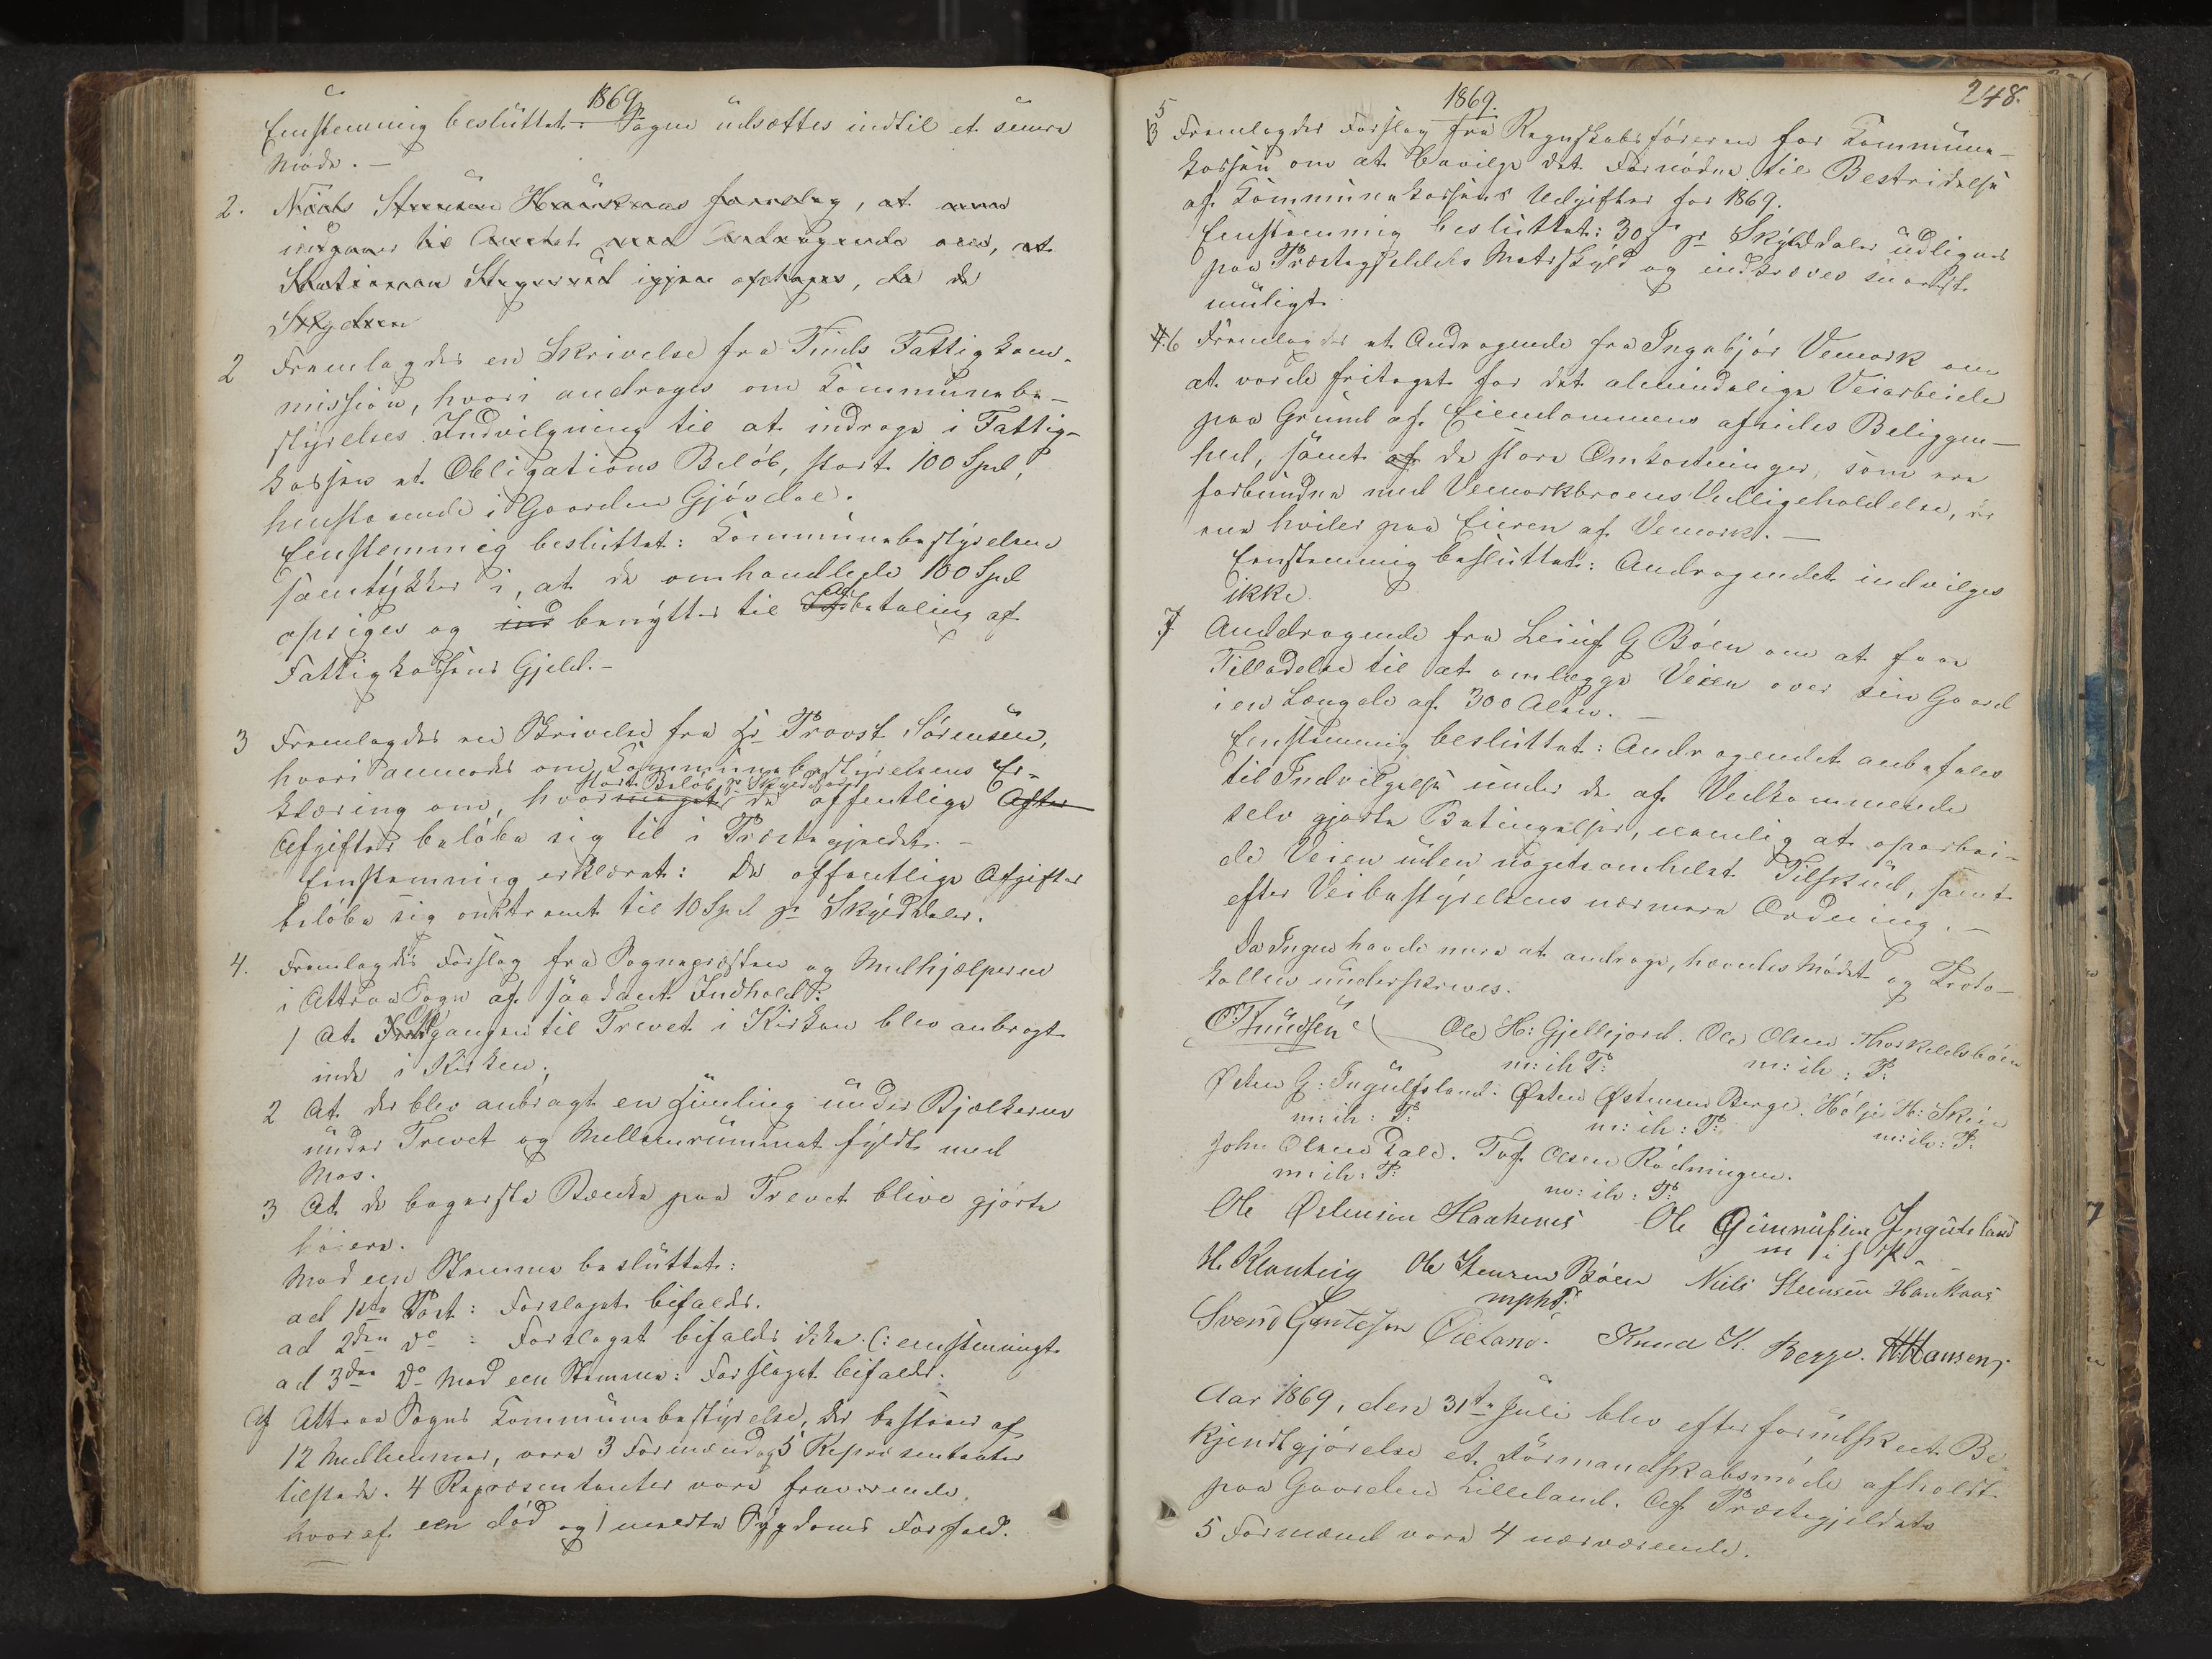 1869.
Eenstemmig besluttet: Sagen udsættes indtil et senere
Møde. —
2. Niels Steensen Haukaas foreslog, at man
indgaaer til Amtet med Andragende om, at
Stationen igjen afskages, da de
Skydsen
2 Fremlagdes en Skrivelse fra Tinds Fattigkom-
mission, hvori androges om Kommunebe-
styrelses Indvilgning til at inddrage i Fattig-
kassen et Obligations Beløb, stort 100 Spd,
henstaaende i Gaarden Gjøsdal.
Eenstemmig besluttet: Kommunebestyrelsen
samtykker i, at de omhandlede 100 Spd
opsiges og ind benyttes til Afbetaling af
Fattigkassens Gjeld. –
3 Fremlagdes en Skrivelse fra Hr Provst Sørensen,
hvori anmodes om Kommunebestyrelsens Er-
stort Beløb pr Skylddaler
klæring om, hvor meget de offentlige After
Afgifter beløbe sig til i Præstegjeldet. –
Eenstemmig erklæret: De offentlige Afgifter
beløbe sig omtrent til 10 Spd pr Skylddaler.
4. Fremlagdes Forslag fra Sognepræsten og Medhjælperne
i Attraa Sogn af saadant Indhold:
1 At Opgangen til Trevet i Kirken blev anbragt
inde i Kirken;
2 At der blev anbragt en Himling under Bjælkerne
under Trevet og Mellemrummet fyldt med
Mos.
3 At de bagerste Bænke paa Trevet blive gjorte
høiere.
Mod een Stemme besluttet:
ad 1ste Post: Forslaget bifaldes.
ad 2den do : Forslaget bifaldes ikke (: eenstemmigt
ad 3die do Mod een Stemme: Forslaget bifaldes.
Af Attraa Sogns Kommunebestyrelse, der bestaaer af
12 Medlemmer, vare 3 Formænd og 5 Repræsentanter
tilstede. 4 Repræsentanter vare fraværende,
hvoraf een død og 1 meldte Sygdoms Forfald.
1869.
248.
5
3 Fremlagdes Forslag fra Regnskabsføreren for Kommune-
kassen om at bevilge det Fornødne til Bestridelse
af Kommunekassens Udgifter for 1869.
Eenstemmig besluttet: 30 s pr Skylddaler udlignes
paa Præstegjeldets Matrskyld og indkræves snarest
muligt.
4. 6 Fremlagdes et Andragende fra Ingebjør Vemork om
at vorde fritaget for det almindelige Veiarbeide
paa Grund af Eiendommens afsides Beliggen-
hed, samt af de store Omkostninger, som ere
forbundne med Vemorkbroens Vedligeholdelse, der
ene hviler paa Eieren af Vemork. —
Eenstemmig besluttet: Andragendet indvilges
ikke.
7 Anddragende fra Leiuf G Bøen om at faae
Tilladelse til at omlægge Veien over sin Gaard
i en Længde af 300 Alen. —
Eenstemmig besluttet: Andragendet anbefales
til Indvilgelse under de af Vedkommende
selv gjorte Betingelser, nemlig at oparbei-
de Veien uden nogetsomhelst Tilskud, samt
efter Veibestyrelsens nærmere Ordning. —
Da Ingen havde mere at andrage, hævedes Mødet og Proto-
kollen underskreves.
Knudsen Ole H: Gjellejord. Ole Olsen Thorkeldsbøen
m: ih P: m: ih : P:
Østen G: Ingulfsland. Østen Østensen Berge. Hølje H: Skeie
m: ih : P: m: ih : P: m: ih : P:
John Olsen Dale. Tov Olsen Rødningen.
m: ih: P: m: ih : P:
Ole Østensen Haakenes Ole Gunnufsen Ingulsland
m i h P.
H. Kvanteig Ole Steensen Bøen Niels Steensen Haukaas
mphP.
Svend Guntefsen Øieland. Knud K. Berge. H Hansen,
Aar 1869, den 31te Juli blev efter forudskeet Be-
kjendtgjørelse et Formandskabsmøde afholdt
paa Gaarden Lilleland. Af Præstegjeldets
5 Formænd vare 4 nærværende.